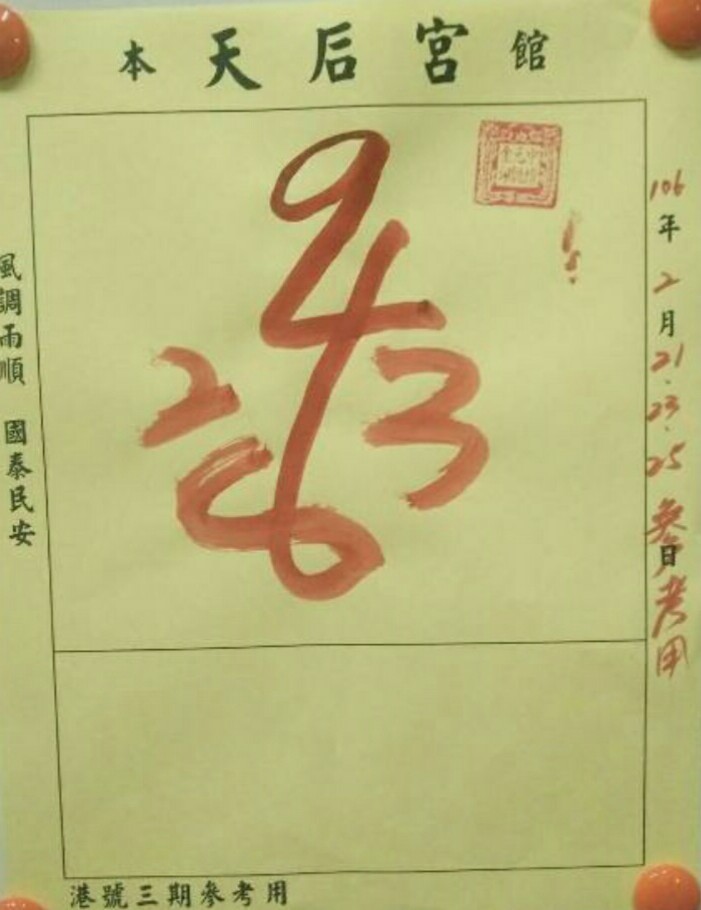 本天后宮館
9
4
2 3
6
106年2月21.23.25日參考用
風調雨順 國泰民安
港號三期參考用